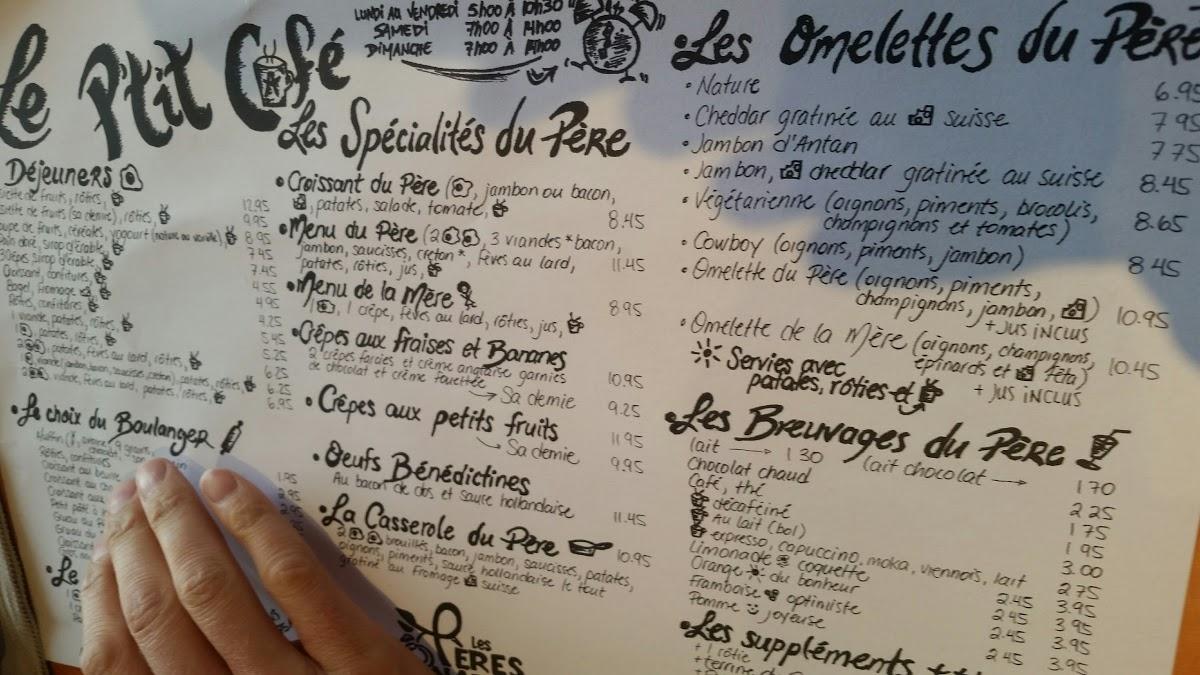 Le P'tit Café
LUNDI AU VENDREDI 5h00 À 10h30
SAMEDI 7h00 À 14h00
DIMANCHE 7h00 À 14h00
Déjeuners
fruits, rôties, 12.95
de fruits (sa demie), rôties, 9.95
de fruits, céréales, yogourt (nature ou vanille), 8.95
doré, sirop d'érable, 7.45
crêpes, sirop d'érable, 7.45
Croissant, confitures, 4.55
Bagel, fromage 4.95
Rôties, confitures 4.25
1 viande, patates, rôties, 5.45
1 , patates, rôties, 5.25
2 , patates, fèves au lard, rôties, 6.25
viande (jambon, bacon, saucisses, creton), patates, rôties, 6.25
2 viande, fèves au lard, patates, rôties, 6.95
•Le choix du Boulanger
Rôties, confitures 1.95
Croissant au beurre 2.95
Croissant au 2.95
Croissant aux
Petit pâté à
Croissant
•Le
Les Spécialités du Père
•Croissant du Père ( , jambon ou bacon,
, patates, salade, tomate, 8.45
•Menu du Père (2 , 3 viandes *bacon,
jambon, saucisses, creton*, fèves au lard,
patates, rôties, jus, 11.45
•Menu de la Mère
1 , 1 crêpe, fèves au lard, rôties, jus, 8.95
•Crêpes aux Fraises et Bananes
2 crêpes farcies et crème anglaise garnies
de chocolat et crème fouettée 10.95
Sa demie 9.25
•Crêpes aux petits fruits 11.95
Sa demie 9.95
•Oeufs Bénédictines
Au bacon de dos et sauce hollandaise 11.45
•La Casserole du Père 10.95
2 brouillés, bacon, jambon, saucisses, patates,
oignons, piments, sauce hollandaise le tout
gratiné au fromage suisse
LES
PERES
•Les Omelettes du Père
•Nature 6.95
•Cheddar gratinée au suisse 7.95
•Jambon d'Antan 7.75
•Jambon, cheddar gratinée au suisse 8.45
•Végétarienne (oignons, piments, brocolis,
champignons et tomates) 8.65
•Cowboy (oignons, piments, jambon) 8.45
•Omelette du Père (oignons, piments,
champignons, jambon, ) 10.95
+ JUS INCLUS
•Omelette de la Mère (oignons, champignons,
épinards et féta) 10.45
+ JUS INCLUS
Servies avec
patates, rôties et
•Les Breuvages du Père
lait 1.30 lait chocolat 1.70
Chocolat chaud 2.25
Café, thé 1.75
décaféiné 1.95
Au lait (bol) 3.00
expresso, capuccino, moka, viennois, lait 2.75
Limonade coquette 2.45 3.95
Orange du bonheur 2.45 3.95
Framboise optimiste 2.45 3.95
Pomme joyeuse 2.45 3.95
•Les suppléments +++
+ 1 rôtie
+ terrine